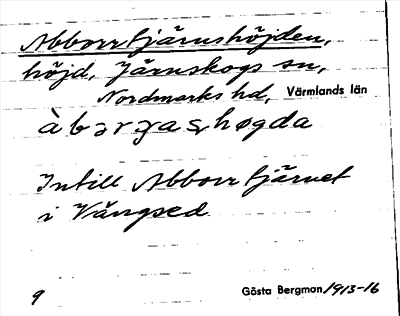 Abborrtjärnshöjden,
höjd, Järnskogs sn,
Nordmarks hd, Värmlands län
Intill Abborrtjärnet
i Vångsed
9 Gösta Bergman 1913-16